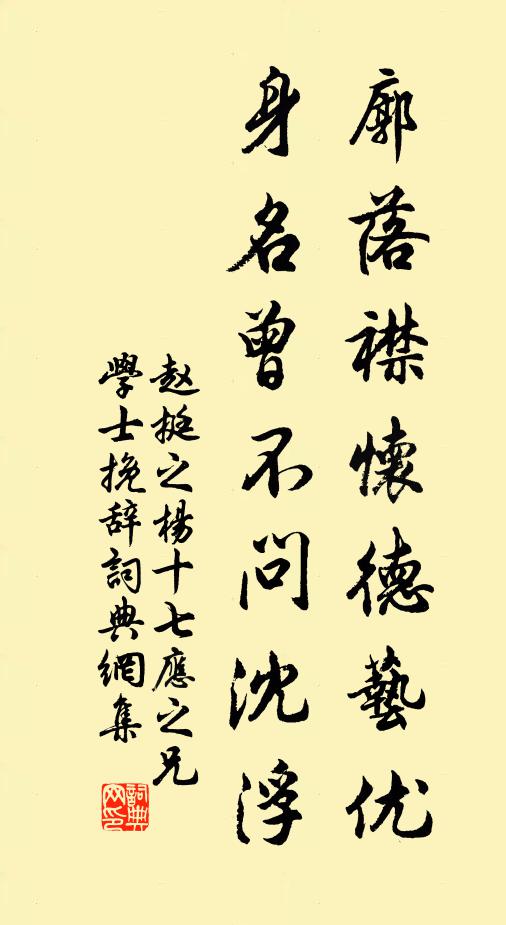 廓落襟懷德藝优
身名曾不问沈浮
赵挺之楊十七應之兄
學士挽辞詞典網集
詞典網印